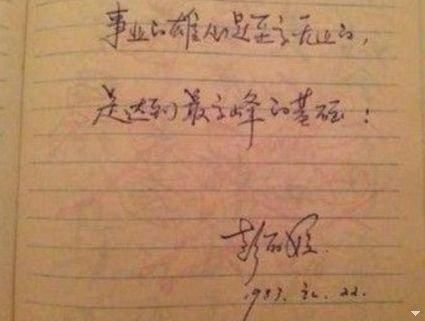 事业的雄心是至高无上的,
是达到最高峰的基础:
彭丽媛
1983.元.22.